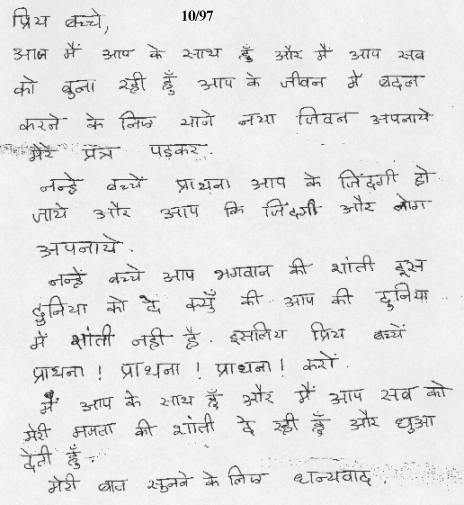 10/97
प्रिय बच्चे,
आज मैं आप के साथ हूँ और मैं आप सब
को बुना रही हूँ आप के जीवन में बदल
करने के लिए याने नया जिवन अपनाये
मेरे प्रत्र पड़कर.
नन्हे बच्चें प्राथना आप के जिंदगी हो
जाये और आप कि जिंदगी और लोग
अपनाये.
नन्हें बच्चे आप भगवान की शांती इस
दुनिया को दे क्युँ की आप की दुनिया
में शांती नही है. इसलिय प्रिय बच्चें
प्राथना! प्राथना! प्राथना! करों.
मैं आप के साथ हूँ और मैं आप सब को
मेरी ममता की शांती दे रही हूँ और धुआ
देती हूँ.
मेरी बात सुनने के लिए धन्यवाद.